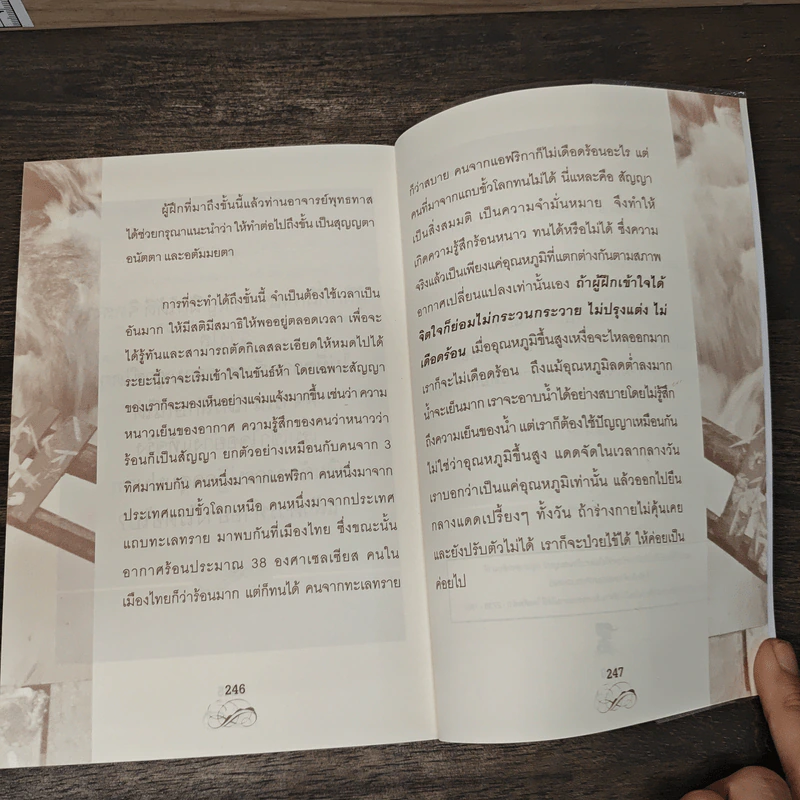 ผู้ฝึกที่มาถึงขั้นนี้แล้วท่านอาจารย์พุทธทาส
ได้ช่วยกรุณาแนะนำว่า ให้ทำต่อไปถึงขั้น เป็นสุญญตา
อนัตตา และอตัมมยตา
การที่จะทำได้ถึงขั้นนี้ จำเป็นต้องใช้เวลาเป็น
อันมาก ให้มีสติมีสมาธิให้พออยู่ตลอดเวลา เพื่อจะ
ได้รู้ทันและสามารถตัดกิเลสละเอียดให้หมดไปได้
ระยะนี้เราจะเริ่มเข้าใจในขันธ์ห้า โดยเฉพาะสัญญา
ของเราก็จะมองเห็นอย่างแจ่มแจ้งมากขึ้น เช่นว่า ความ
หนาวเย็นของอากาศ ความรู้สึกของคนว่าหนาวว่า
ร้อนก็เป็นสัญญา ยกตัวอย่างเหมือนกับคนจาก 3
ทิศมาพบกัน คนหนึ่งมาจากแอฟริกา คนหนึ่งมาจาก
ประเทศแถบขั้วโลกเหนือ คนหนึ่งมาจากประเทศ
แถบทะเลทราย มาพบกันที่เมืองไทย ซึ่งขณะนั้น
อากาศร้อนประมาณ 38 องศาเซลเซียส คนใน
เมืองไทยก็ว่าร้อนมาก แต่ก็ทนได้ คนจากทะเลทราย
246
ก็ว่าสบาย คนจากแอฟริกาก็ไม่เดือดร้อนอะไร แต่
คนที่มาจากแถบขั้วโลกทนไม่ได้ นี่แหละคือ สัญญา
เป็นสิ่งสมมติ เป็นความจำมั่นหมาย จึงทำให้
เกิดความรู้สึกร้อนหนาว ทนได้หรือไม่ได้ ซึ่งความ
จริงแล้วเป็นเพียงแค่อุณหภูมิที่แตกต่างกันตามสภาพ
อากาศเปลี่ยนแปลงเท่านั้นเอง ถ้าผู้ฝึกเข้าใจได้
จิตใจก็ย่อมไม่กระวนกระวาย ไม่ปรุงแต่ง ไม่
เดือดร้อน เมื่ออุณหภูมิขึ้นสูงเหงื่อจะไหลออกมาก
เราก็จะไม่เดือดร้อน ถึงแม้อุณหภูมิลดต่ำลงมาก
น้ำจะเย็นมาก เราจะอาบน้ำได้อย่างสบายโดยไม่รู้สึก
ถึงความเย็นของน้ำ แต่เราก็ต้องใช้ปัญญาเหมือนกัน
ไม่ใช่ว่าอุณหภูมิขึ้นสูง แดดจัดในเวลากลางวัน
เราบอกว่าเป็นแค่อุณหภูมิเท่านั้น แล้วออกไปยืน
กลางแดดเปรี้ยงๆ ทั้งวัน ถ้าร่างกายไม่คุ้นเคย
และยังปรับตัวไม่ได้ เราก็จะป่วยไข้ได้ ให้ค่อยเป็น
ค่อยไป
247